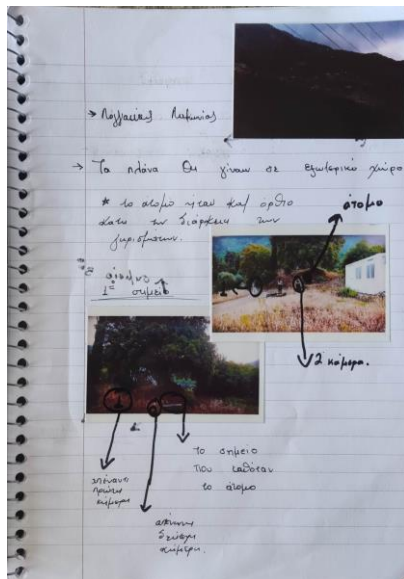 → Λογγανίκος Λακωνίας
→ Τα πλάνα θα γίνουν σε εξωτερικό χώρο
* το άτομο ήταν και όρθιο
κατά την διάρκεια των
γυρισμάτων.
άτομο
1ο
σημείο
2 κάμερα.
το σημείο
που καθόταν
το άτομο
απέναντι
πρώτη
κάμερα
απέναντι
δεύτερη
κάμερα.